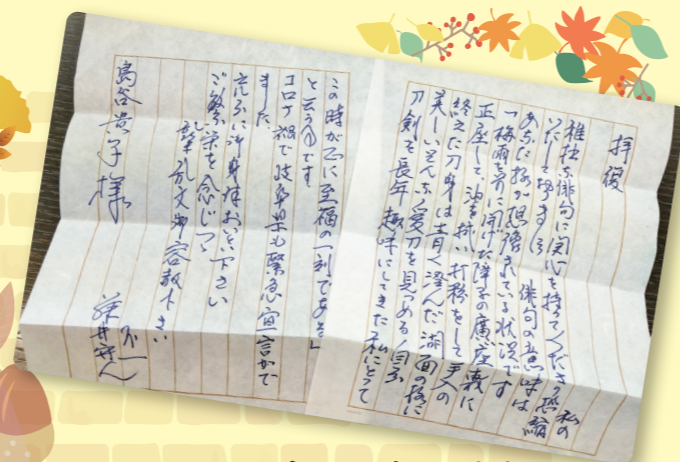 拝復
雅拙な俳句に関心を持ってくださり恐縮
いたして居ります 俳句の意味は 私の
あなた様が想像されている状況です
「梅雨寒に開けた障子の廣い座敷に
正座して、油を拭い打粉をして手入の
終えた刀身は青く澄んだ湖面の様に
美しいそんな愛刀を見つめる自分
刀剣を長年趣味にしてきた私にとって
この時が正に至福の一刻である」
と云う句です
コロナ禍で岐阜県も緊急宣言がで
ました
充分に御身体おいとい下さい
ご繁栄を念じつゝ
乱筆乱文御容赦下さい
不一
島谷貴子様